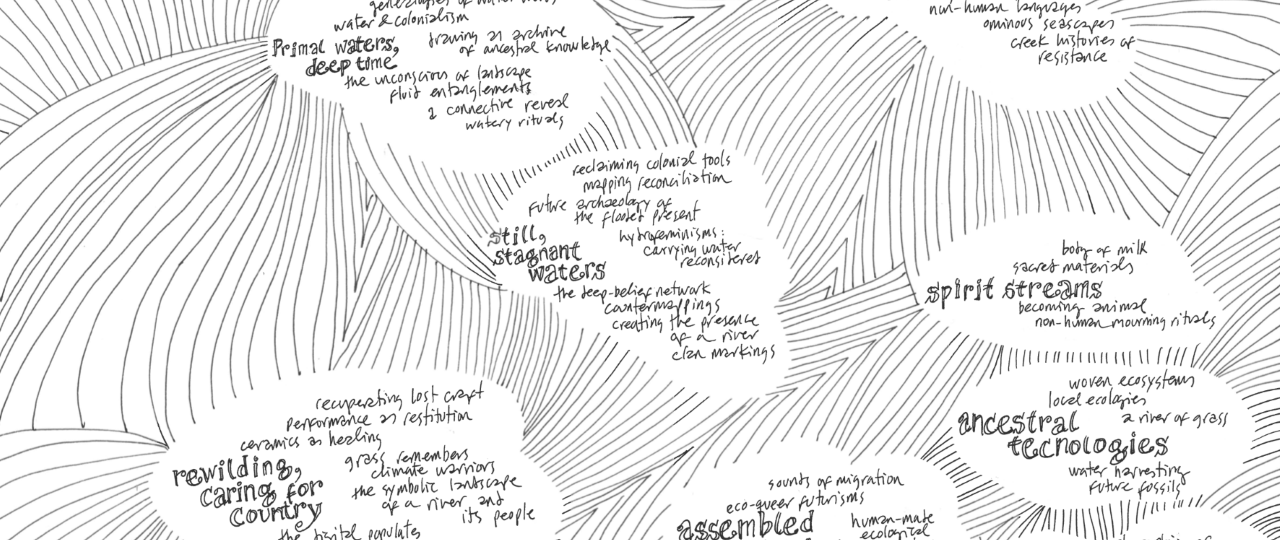 water & colonialism
Primal waters,
deep time
drawing as archive
of ancestral knowledge
the unconscious of landscape
fluid entanglements
a connective reveal
watery rituals
non-human languages
ominous seascapes
creek histories of
resistance
reclaiming colonial tools
mapping reconciliation
future archaeology of
the flooded present
still,
stagnant
waters
hydrofeminisms:
carrying water
reconsidered
the deep-belief network
countermappings
creating the presence
of a river
clan markings
body of milk
sacred materials
spirit streams
becoming-animal
non-human mourning rituals
woven ecosystems
local ecologies
ancestral
tecnologies
a river of grass
water harvesting
future fossils
recuperating lost craft
performance as restitution
ceramics as healing
rewilding,
caring for
country
grass remembers
climate warriors
the symbolic landscape
of a river and
its people
the digital populates
sounds of migration
eco-queer futurisms
assembled
human-made
ecological